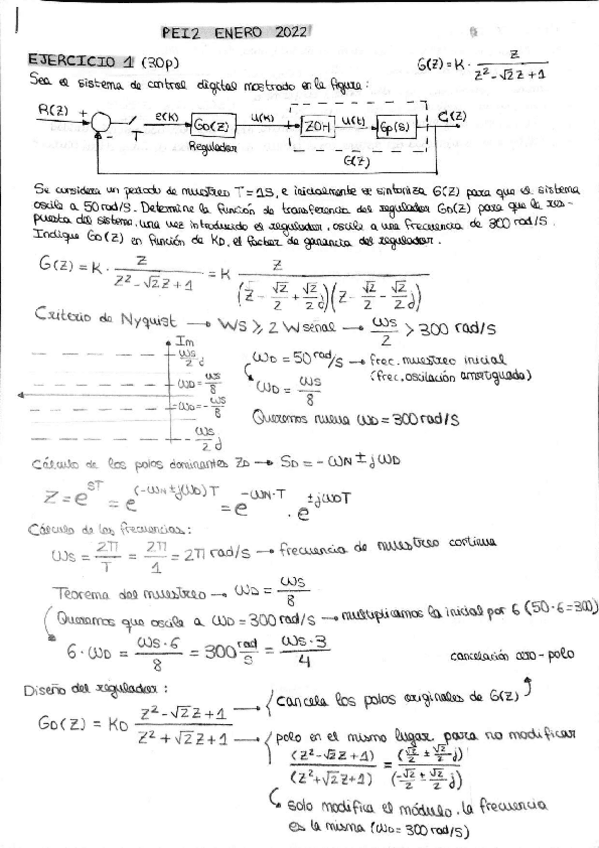 PEI2 ENERO 2022
EJERCICIO 1 (30p)
G(z) = K · z / (z² - √2z + 1)
Sea el sistema de control digital mostrado en la figura:
R(z) + - T e(k) GD(z) Regulador u(k) ZOH u(t) Gp(s) C(z)
G(z)
Se considera un periodo de muestreo T=1s, e inicialmente se sintoniza G(z) para que el sistema
oscile a 50 rad/s. Determine la función de transferencia del regulador GD(z) para que la res-
puesta del sistema, una vez introducido el regulador, oscile a una frecuencia de 300 rad/s.
Indique GD(z) en función de KD, el factor de ganancia del regulador.
G(z) = K · z / (z² - √2z + 1) = K z / ((z - √2/2 + √2/2 j)(z - √2/2 - √2/2 j))
Criterio de Nyquist → ωs ≥ 2 ωseñal → ωs/2 > 300 rad/s
Im
ωs/2 j
ωD = ωs/8
-ωD = -ωs/8
-ωs/2 j
ωD = 50 rad/s → frec. muestreo inicial
(frec. oscilación amortiguada)
ωD = ωs/8
Queremos nueva ωD = 300 rad/s
Cálculo de los polos dominantes zD → SD = -ωN ± jωD
z = e^sT = e^(-ωN ± jωD)T = e^-ωN·T · e^±jωDT
Cálculo de las frecuencias:
ωs = 2π/T = 2π/1 = 2π rad/s → frecuencia de muestreo continua
Teorema del muestreo → ωD = ωs/8
Queremos que oscile a ωD = 300 rad/s → multiplicamos la inicial por 6 (50·6=300)
6·ωD = ωs·6/8 = 300 rad/s = ωs·3/4
cancelación cero-polo
Diseño del regulador:
GD(z) = KD (z² - √2z + 1) / (z² + √2z + 1)
→ cancela los polos originales de G(z)
→ polo en el mismo lugar, para no modificar
(z² - √2z + 1) / (z² + √2z + 1) = (√2/2 ± √2/2 j) / (-√2/2 ± √2/2 j)
solo modifica el módulo, la frecuencia
es la misma (ωD = 300 rad/s)